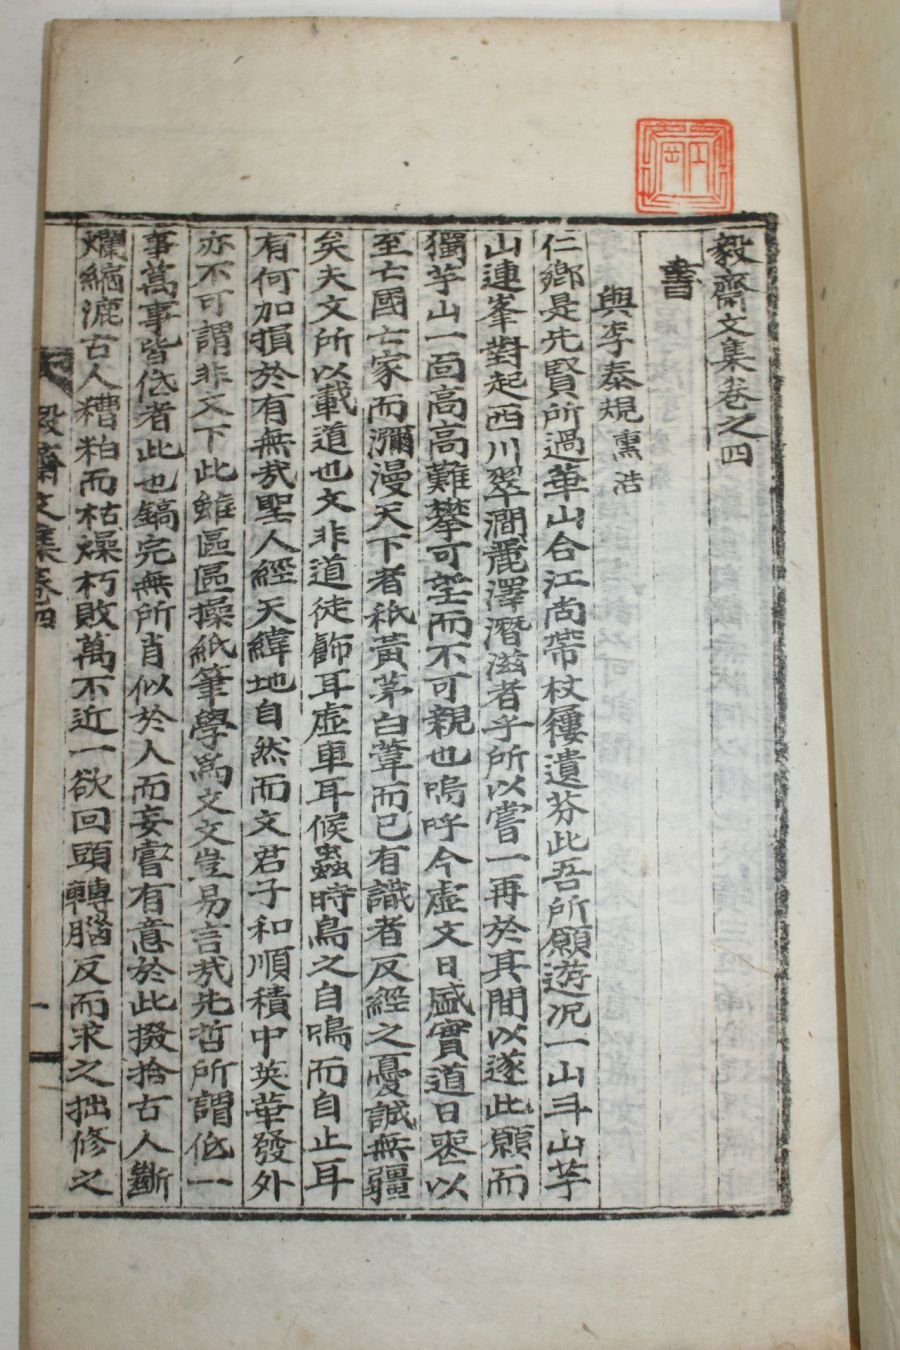 毅齋文集卷之四
書
與李泰規熏浩
仁鄉是先賢所過華山合江尚帶杖屨遺芬此吾所願遊况一山斗山芋
山連峯對起西川翠澗麗澤潛滋者乎所以嘗一再於其間以遂此願而
獨芋山一面高高難攀可望而不可親也嗚呼今虛文日盛實道日喪以
至亡國亡家而瀰漫天下者秖黃茅白葦而已有識者反經之憂誠無疆
矣夫文所以載道也文非道徒飾耳虛車耳候蟲時鳥之自鳴而自止耳
有何加損於有無㦲聖人經天緯地自然而文君子和順積中英華發外
亦不可謂非文下此雖區區操紙筆學爲文文豈易言㦲先哲所謂低一
事萬事皆低者此也鎬完無所肖似於人而妄嘗有意於此掇拾古人斷
爛縞漉古人糟粕而枯燥朽敗萬不近一欲回頭轉腦反而求之拙修之
毅齋文集卷四
一